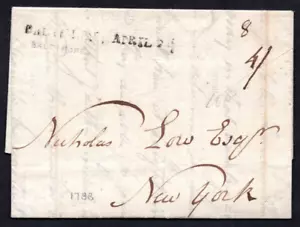 8
BALTIMORE, APRIL 25
4/
BALTIMORE
Nicholas Low Esqr.
New York
1788